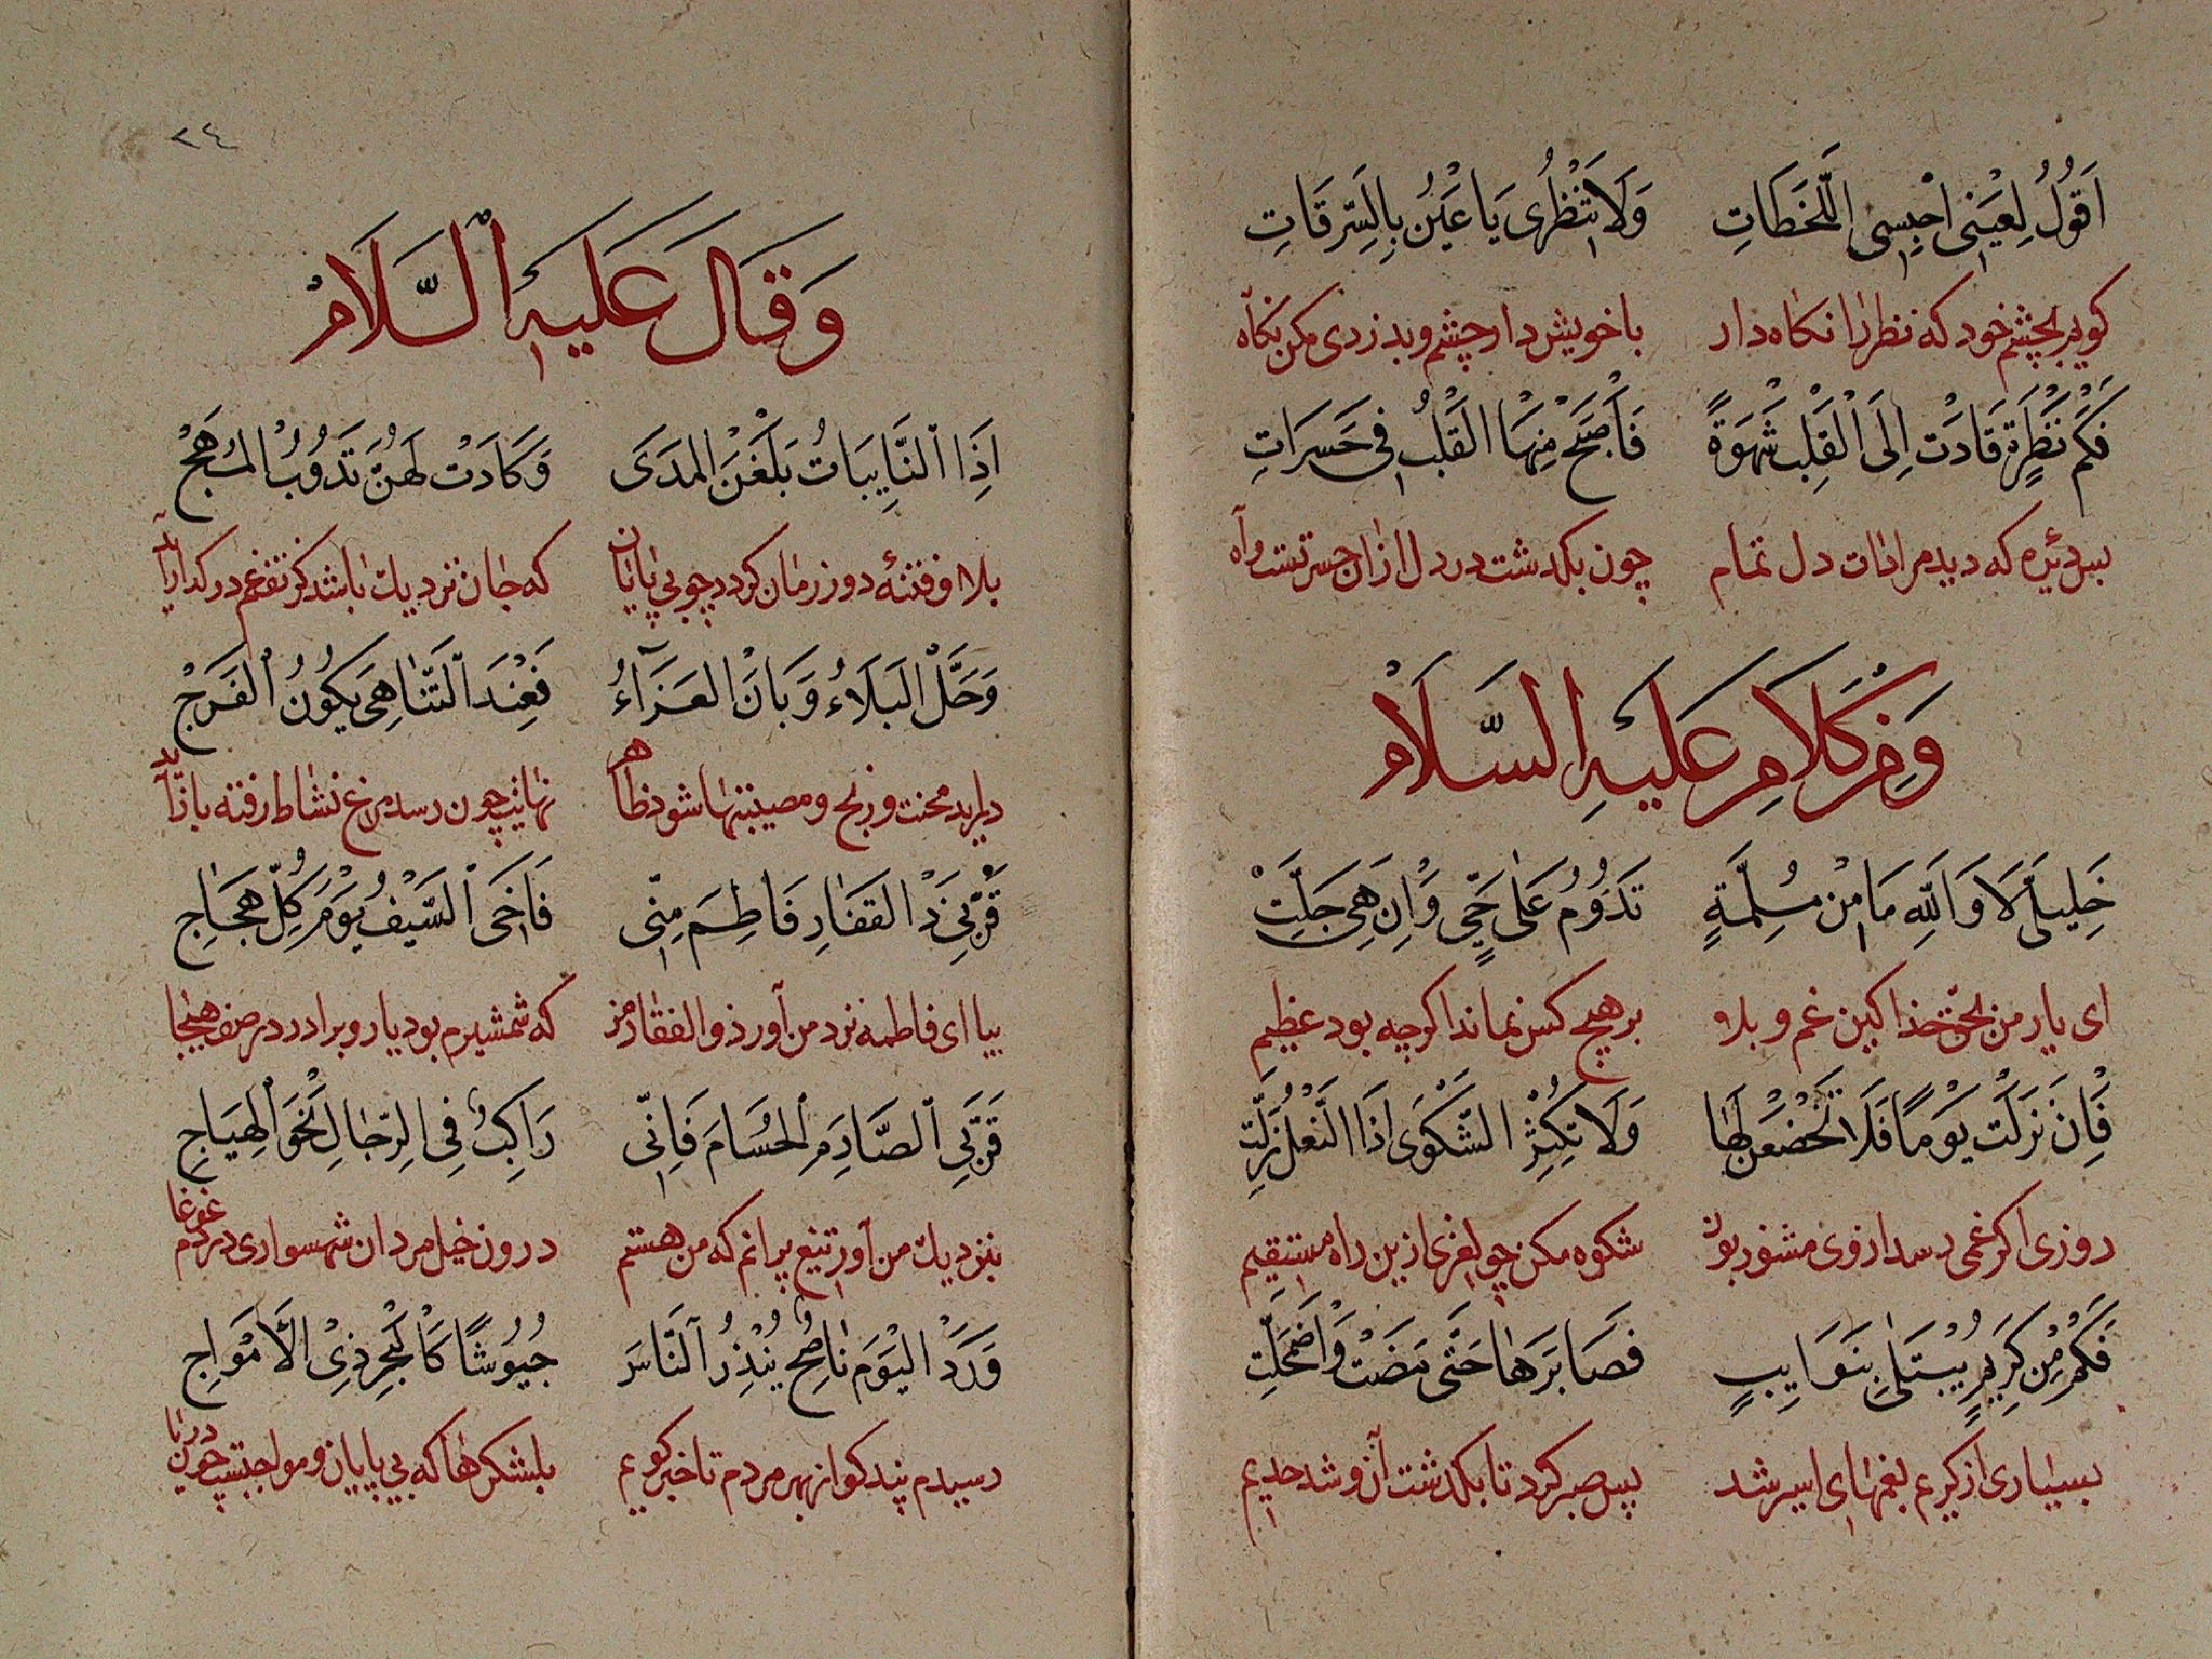 اَقُولُ لِعَيْنِى احْبِسِى اللَّحَظَاتِ وَلَا تَنْظُرِى يَا عَيْنُ بِالسَّرِقَاتِ
کویم بچشم خود که نظر را نکاه دار با خویش دار چشم و بدزدی مکن نکاه
فَكَمْ نَظْرَةٍ قَادَتْ اِلَى الْقَلْبِ شَهْوَةً فَاَصْبَحَ مِنْهَا الْقَلْبُ فِى حَسَرَاتِ
بس دیده که دید مرادات دل تمام چون بکدشت در دل ازان حسرتست و آه
وَمِنْ كَلَامِهِ عَلَيْهِ السَّلَامْ
خَلِيلَىَّ لَا وَاللهِ مَا مِنْ مُسِلِمَّةٍ تَدُوُمُ عَلٰى حَىٍّ وَاِنْ هِىَ جَلَّتْ
ای یار من بحق خذا کین غم و بلا بر هیچ کس نماند اکرچه بود عظیم
فَاِنْ نَزَلَتْ يَوْمًا فَلَا تَخْضَعَنْ لَهَا وَلَا تُكْثِرُ الشَّكْوَى اِذَا النَّعْلُ زَلَّتِ
روزی اکر غمی رسد از وی مشو زبون شکوه مکن چو لغزی ازین راه مستقیم
فَكَمْ مِنْ كَرِيمٍ يُبْتَلٰى بِنَوَايِبٍ فَصَابَرَهَا حَتَّى مَضَتْ وَاضْمَحَلَّتِ
بسیاری از کریم بغمهای اسیر شد پس صبر کرد تا بکدشت آن و شد
٢٤
وَقَالَ عَلَيْهِ السَّلَامْ
اِذَا النَّايِبَاتُ بَلَغْنَ الْمَدَى وَكَادَتْ لَهُنَّ تَذُوُبُ الْمُهَجْ
بلا و فتنهٔ دور زمان کردد چو بی پایان که جان نزدیک باشد کز تف غم در کداز آید
وَحَلَّ الْبَلَاءُ وَبَانَ الْعَزَآءُ فَعِنْدَ التَّنَاهِى يَكُونُ الْفَرَجْ
در آید محنت و رنج و مصیبتها شود ظاهر نهایت چون رسد مرغ نشاط رفته باز آید
قَرِّبِى ذَ الْفَقَارِ فَاطِمَ مِنِّى فَاَخِى السَّيْفُ يَوْمَ كُلِّ هَجَاجِ
بیا ای فاطمه نزد من آور ذو الفقار من که شمشیرم بود یار و برادر در صف هیجا
قَرِّبِى الصَّارِمَ الْحُسَامَ فَاِنِّى رَاكِبٌ فِى الرِّجَالِ نَحْوَ الْهِيَاجِ
بنزدیک من آور تیغ برانم که من هستم درون خیل مردان شهسواری در دم غوغا
وَرَدَ الْيَوْمَ نَاصِحٌ يُنْذِرُ النَّاسَ جُيُوُشًا كَالْبَحْرِ ذِى الْاَمْوَاجِ
رسیدم پند کو از بهر مردم تا خبر کویم بلشکرها که بی پایان و مواجست چون دریا